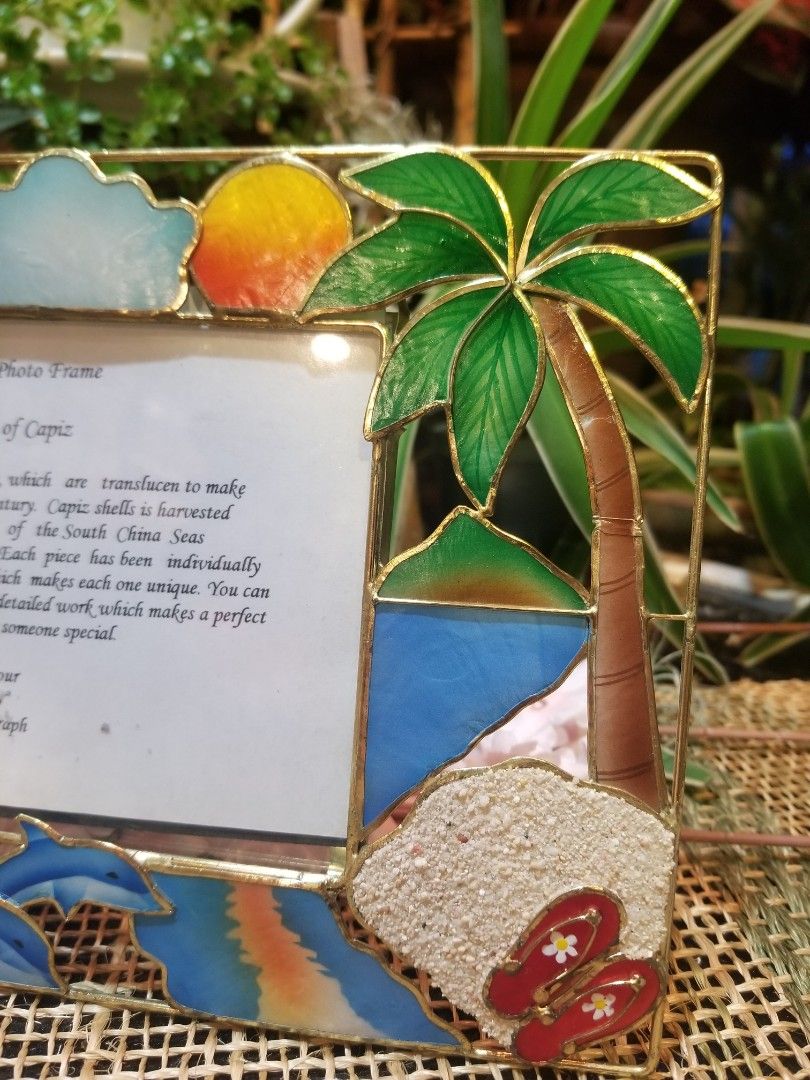 Photo Frame
of Capiz
, which are translucen to make
ntury. Capiz shells is harvested
of the South China Seas
Each piece has been individually
ich makes each one unique. You can
detailed work which makes a perfect
someone special.
our
raph